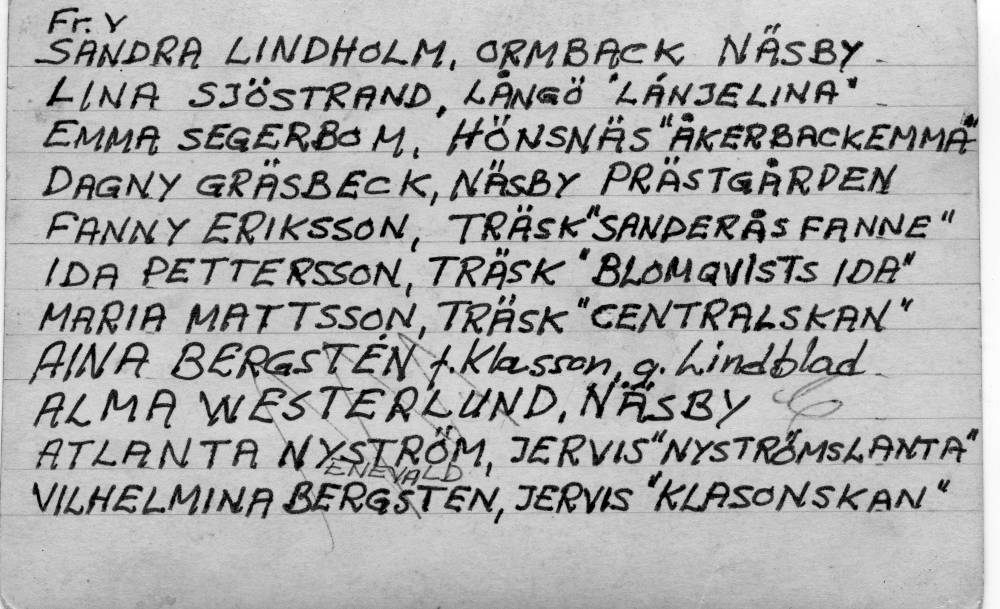 Fr. V
SANDRA LINDHOLM, ORMBACK NÄSBY.
LINA SJÖSTRAND, LÅNGÖ "LÅNJELINA".
EMMA SEGERBOM, HÖNSNÄS "ÅKERBACKEMMA"
DAGNY GRÄSBECK, NÄSBY PRÄSTGÅRDEN
FANNY ERIKSSON, TRÄSK "SANDERÅS FANNE"
IDA PETTERSSON, TRÄSK "BLOMQVISTS IDA"
MARIA MATTSSON, TRÄSK "CENTRALSKAN"
AINA BERGSTÉN f. Klasson, g. Lindblad
ALMA WESTERLUND, NÄSBY
ATLANTA NYSTRÖM, JERVIS "NYSTRÖMSLANTA"
ENEVALD
VILHELMINA BERGSTEN, JERVIS "KLASONSKAN"